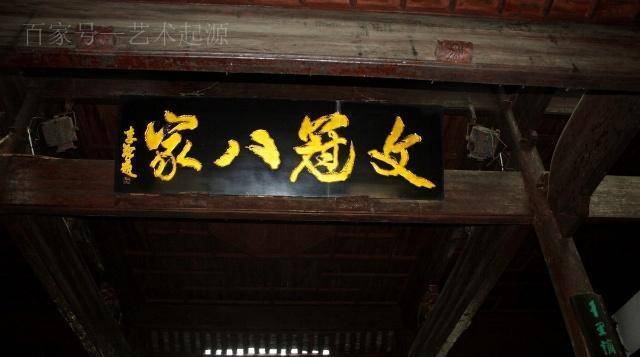 百家号—艺术起源
文冠八家